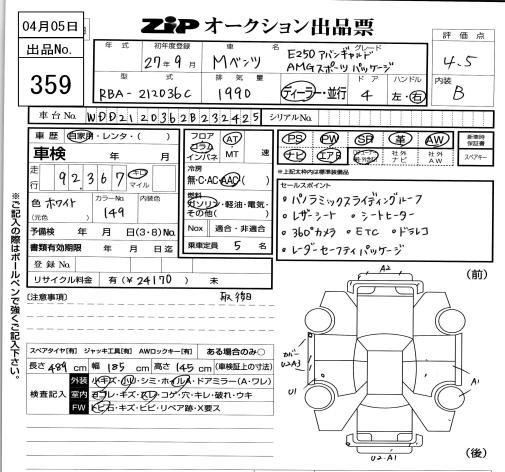 04月05日
出品No.
359
ZIP オークション出品票
年式 初年度登録 車名 グレード
27年9月 Mベンツ E250 アバンギャルド
AMGスポーツパッケージ
型式 排気量 ドア ハンドル
RBA-212036C 1990 ディーラー・並行 4 左・右
評価点
4.5
内装
B
車台No. WDD2120362B232425 シリアルNo.
車歴 自家用・レンタ・( )
車検 年 月
走行 92,367 キロ マイル
色 ホワイト カラーNo. 149 内装色
(元色)
予備検 年 月 日(3・8)No.
書類有効期限 年 月 日迄
登録No.
リサイクル料金 有(¥24170) 未
フロア コラム インパネ AT MT 速
冷房 無・C・AC・AAC( )
燃料 ガソリン・軽油・電気・その他( )
Nox 適合・非適合
乗車定員 5 名
PS PW SR 革 AW
ナビ エアB 社外ナビ 社外AW
新車時保証書
スペアキー
※上記太枠内は標準装備品
セールスポイント
・パノラミックスライディングルーフ
・レザーシート ・シートヒーター
・360°カメラ ・ETC ・ドラレコ
・レーダーセーフティパッケージ
(注意事項)
スペアタイヤ[有] ジャッキ工具[有] AWロックキー[有] ある場合のみ○
長さ 489 cm 幅 185 cm 高さ 145 cm (車検証上の寸法)
検査記入
外装 小キズ・小U・シミ・ホイルA・ドアミラー(A・ワレ)
室内 ヨゴレ・キズ・スレ・コゲ・穴・キレ・破れ・ウキ
FW トビ石・キズ・ヒビ・リペア跡・X要ス
※ご記入の際はボールペンで強くご記入下さい。
(前)
A2
カバー
U2A3
U1
A1
U2・A1
(後)